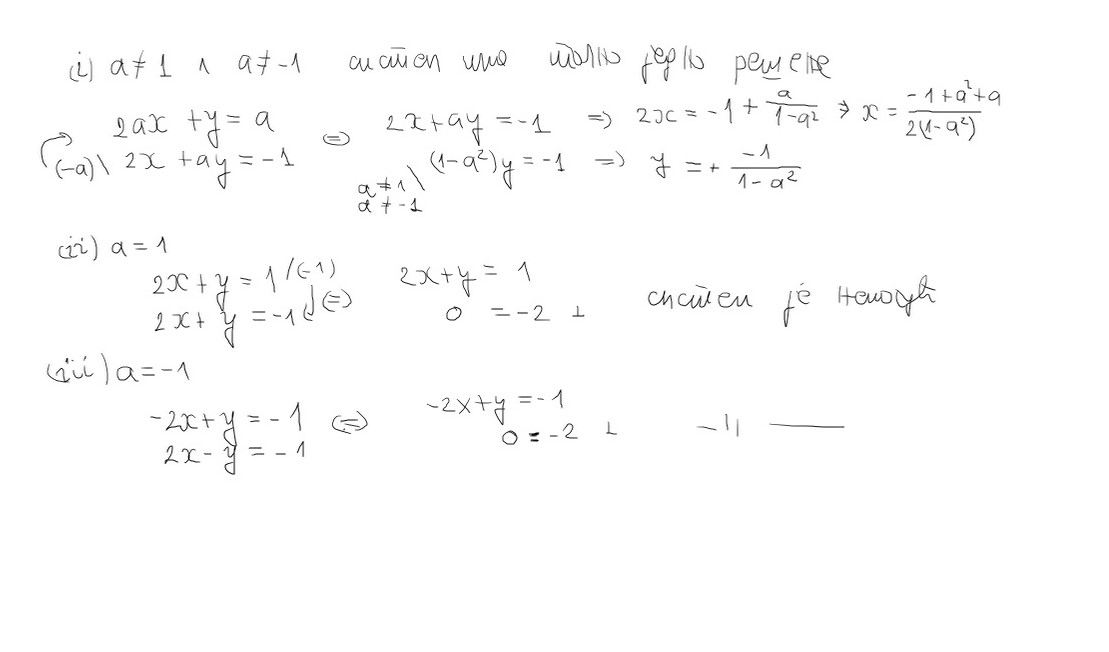 (i) a ≠ 1 ∧ a ≠ -1 систем има тачно једно решење
2ax + y = a ⇔ 2x + ay = -1 ⇒ 2x = -1 + a/(1-a²) ⇒ x = (-1+a²+a)/(2(1-a²))
(-a)\ 2x + ay = -1 (1-a²)y = -1 ⇒ y = + -1/(1-a²)
a ≠ 1 \
a ≠ -1
(ii) a = 1
2x + y = 1 /(-1) 2x + y = 1
2x + y = -1 ⇔ 0 = -2 ⊥ систем је немогућ
(iii) a = -1
-2x + y = -1 ⇔ -2x + y = -1
2x - y = -1 0 = -2 ⊥ -11 —